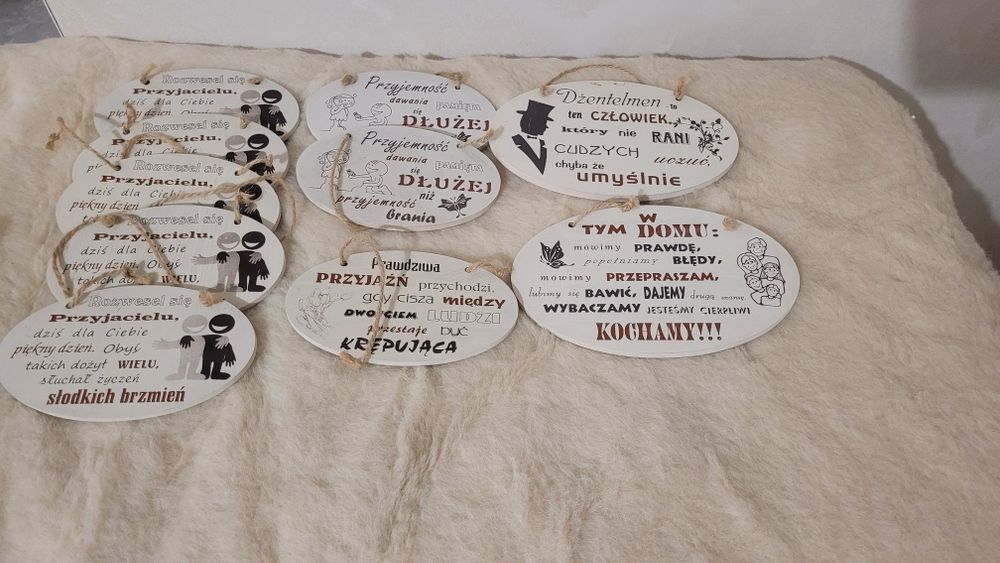 Rozwesel się
Przyjacielu,
dziś dla Ciebie
Rozwesel się
Przyjacielu,
dziś dla Ciebie
Rozwesel się
Przyjacielu,
dziś dla Ciebie
piękny dzień. Obyś
Rozwesel się
Przyjacielu,
dziś dla Ciebie
piękny dzień. Obyś
takich dożył WIELU,
Rozwesel się
Przyjacielu,
dziś dla Ciebie
piękny dzień. Obyś
takich dożył WIELU,
słuchał życzeń
słodkich brzmień
Przyjemność
dawania pamięta
się DŁUŻEJ
Przyjemność
dawania pamięta
się DŁUŻEJ
niż
przyjemność
brania
Prawdziwa
PRZYJAŹŃ przychodzi,
gdy cisza między
DWOJGIEM LUDZI
przestaje być
KRĘPUJĄCA
Dżentelmen to
ten CZŁOWIEK,
który nie RANI
CUDZYCH uczuć,
chyba że
umyślnie
W
TYM DOMU:
mówimy PRAWDĘ,
popełniamy BŁĘDY,
mówimy PRZEPRASZAM,
lubimy się BAWIĆ, DAJEMY drugą szansę,
WYBACZAMY JESTEŚMY CIERPLIWI
KOCHAMY!!!